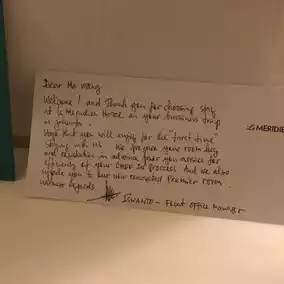 Dear Mr Wang
Welcome! and Thank you for choosing stay
at Le Meridien Hotel on your bussiness trip
in Jakarta.
hope that you will enjoy for the "first time"
staying with us. We prepare your room key
and registration in advance your arrival for
efficiency of your check in process And we also
upgrade you to our new renovated Premier room.
warmest Regards
ISWANTO - Front office manager
MERIDIE